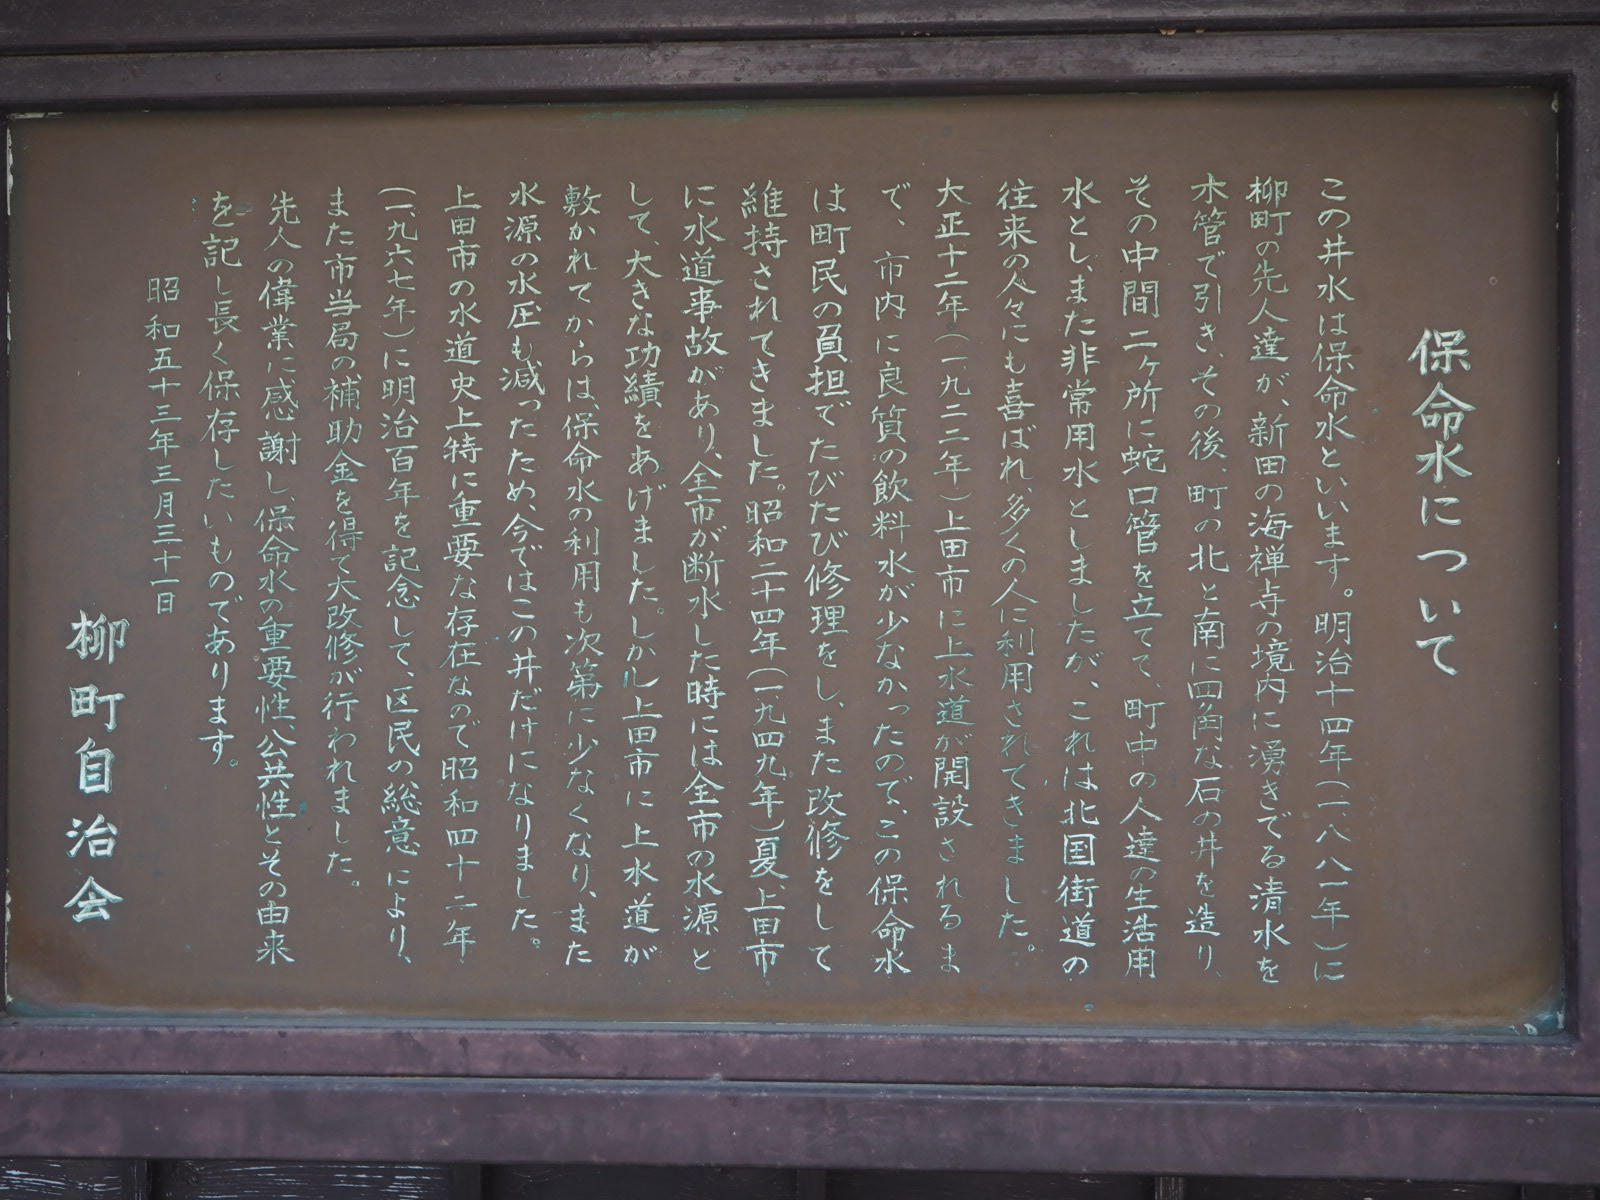 保命水について
この井水は保命水といいます。明治十四年(一、八八一年)に
柳町の先人達が、新田の海禅寺の境内に湧きでる清水を
木管で引き、その後、町の北と南に四角な石の井を造り、
その中間二ヶ所に蛇口管を立てて、町中の人達の生活用
水とし、また非常用水としましたが、これは北国街道の
往来の人々にも喜ばれ、多くの人に利用されてきました。
大正十二年(一、九二三年)上田市に上水道が開設されるま
で、市内に良質の飲料水が少なかったので、この保命水
は町民の負担でたびたび修理をし、また改修をして
維持されてきました。昭和二十四年(一九四九年)夏、上田市
に水道事故があり、全市が断水した時には全市の水源と
して、大きな功績をあげました。しかし上田市に上水道が
敷かれてからは、保命水の利用も次第に少なくなり、また
水源の水圧も減ったため、今ではこの井だけになりました。
上田市の水道史上特に重要な存在なので昭和四十二年
(一、九六七年)に明治百年を記念して、区民の総意により、
また市当局の補助金を得て大改修が行われました。
先人の偉業に感謝し、保命水の重要性公共性とその由来
を記し長く保存したいものであります。
昭和五十三年三月三十一日
柳町自治会